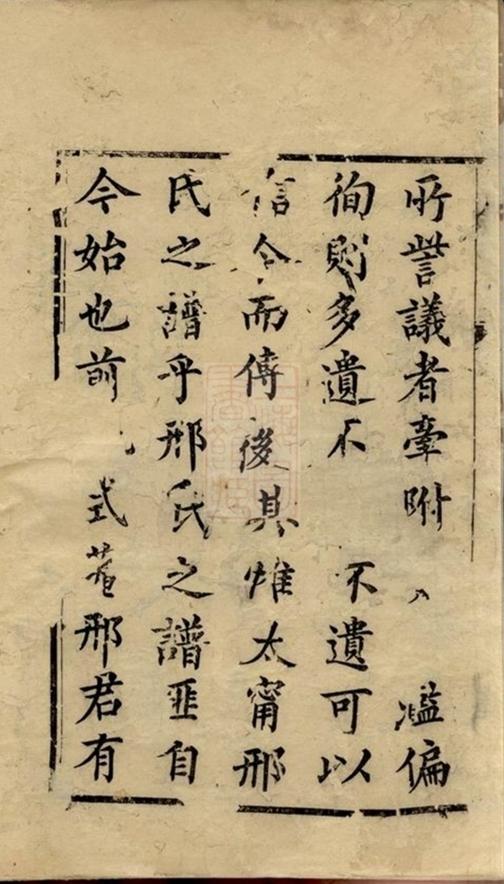 所訾議者牽附濫偏
徇則多遺不不遺可以
信今而傳後其惟太甯邢
氏之譜乎邢氏之譜匪自
今始也前式菴邢君有